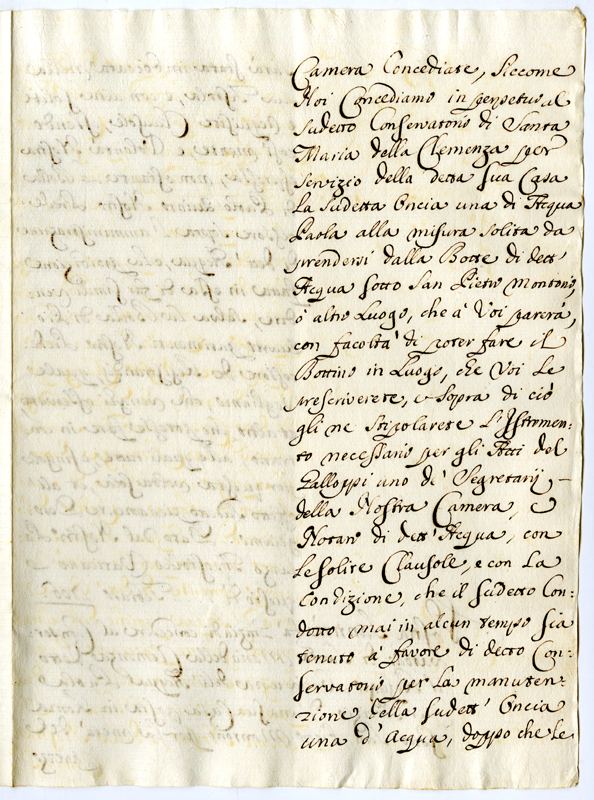 Camera Concediate, siccome
Noi Concediamo in perpetuo al
sudetto Conservatorio di Santa
Maria della Clemenza per
servizio della detta sua Casa
la sudetta Oncia una di Acqua
Paola alla misura solita da
prendersi dalla Botte di dett'
Acqua sotto San Pietro Montorio,
ò altro Luogo, che à Voi parerà,
con facoltà di poter fare il
Bottino in Luogo, che Voi le
prescriverete, e sopra di ciò
gli ne stipolarete l'Istrmen:
to necessario per gli Atti del
Galloppi uno de' Segretarij
della Nostra Camera, e
Notaro di dett' Acqua, con
le solite Clausole, e con la
Condizione, che il sudetto Con:
dotto mai in alcun tempo sia
tenuto à favore di detto Con:
servatorio per la manuten:
zione della sudett' Oncia
una d'Acqua, doppo che le